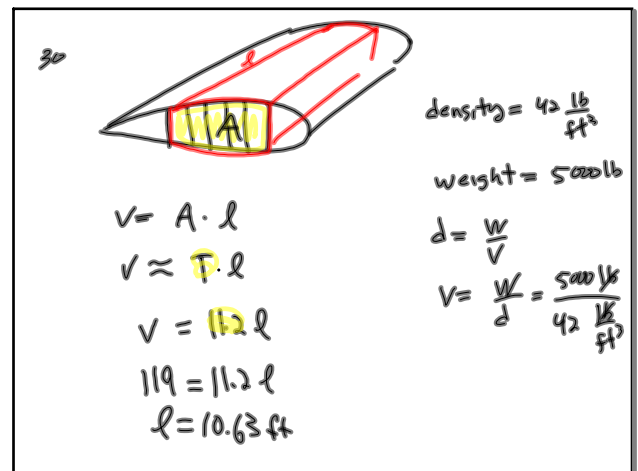 30
l
A
V = A · l
V ≈ T · l
V = 11.2 l
119 = 11.2 l
l = 10.63 ft
density = 42 lb/ft³
weight = 5000 lb
d = W/V
V = W/d = 5000 lb / 42 lb/ft³